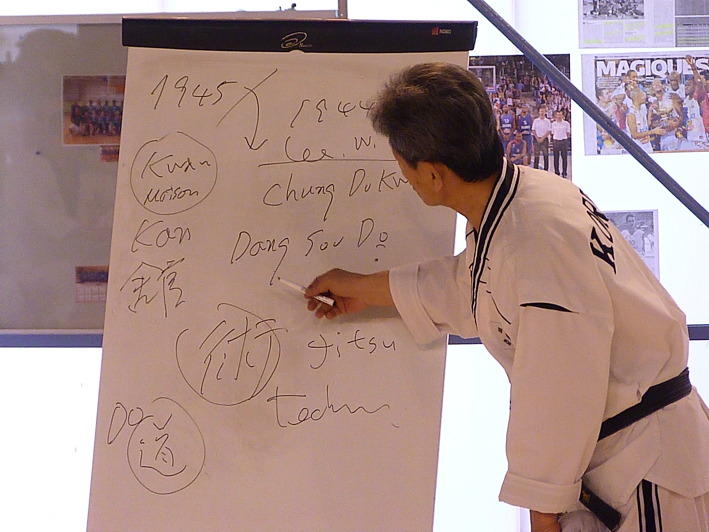 1945
1944
Lee. W.
Kwan
Maison
Chung Do Kw
Kan
Dang Sou Do
館
術 Jitsu
Techn
Do
道
MAGIQUES